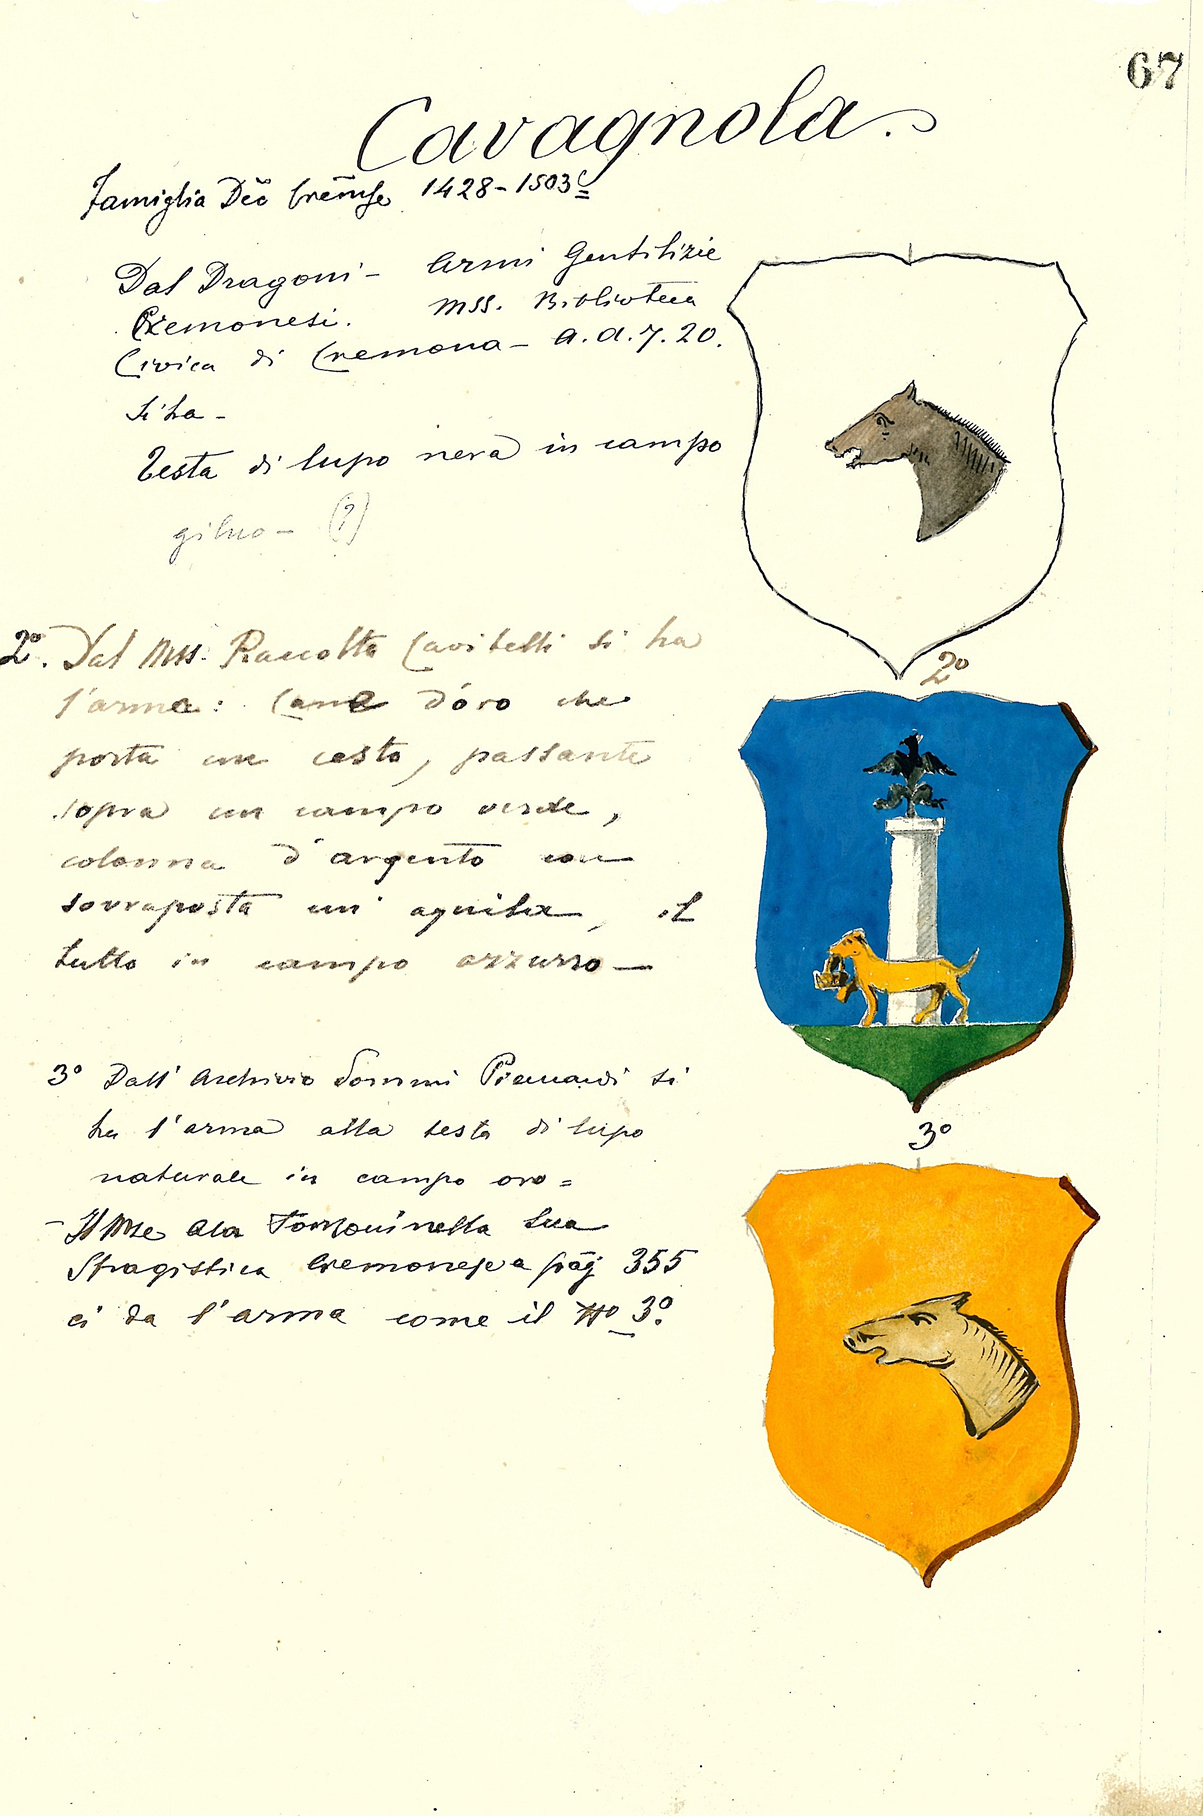 67
Cavagnola.
Famiglia Dec̃ Crem̃se 1428-1503
Dal Dragoni - Armi Gentilizie
Cremonesi. mss. Biblioteca
Civica di Cremona - a.d.7.20.
Si ha -
Testa di lupo nera in campo
gilvo - (?)
2º. Dal Mss. Raccolta Cavitelli si ha
l'arma: Cane d'oro che
porta un cesto, passante
sopra un campo verde,
colonna d'argento con
sovraposta un' aquila, il
tutto in campo azzurro -
2º
3º Dall' Archivio Sommi Picenardi si
ha l'arma alla testa di lupo
naturale in campo oro =
3º
- Il Mse Ala Ponzoni nella sua
Sfragistica Cremonese a pag 355
ci da l'arma come il Nº 3º.